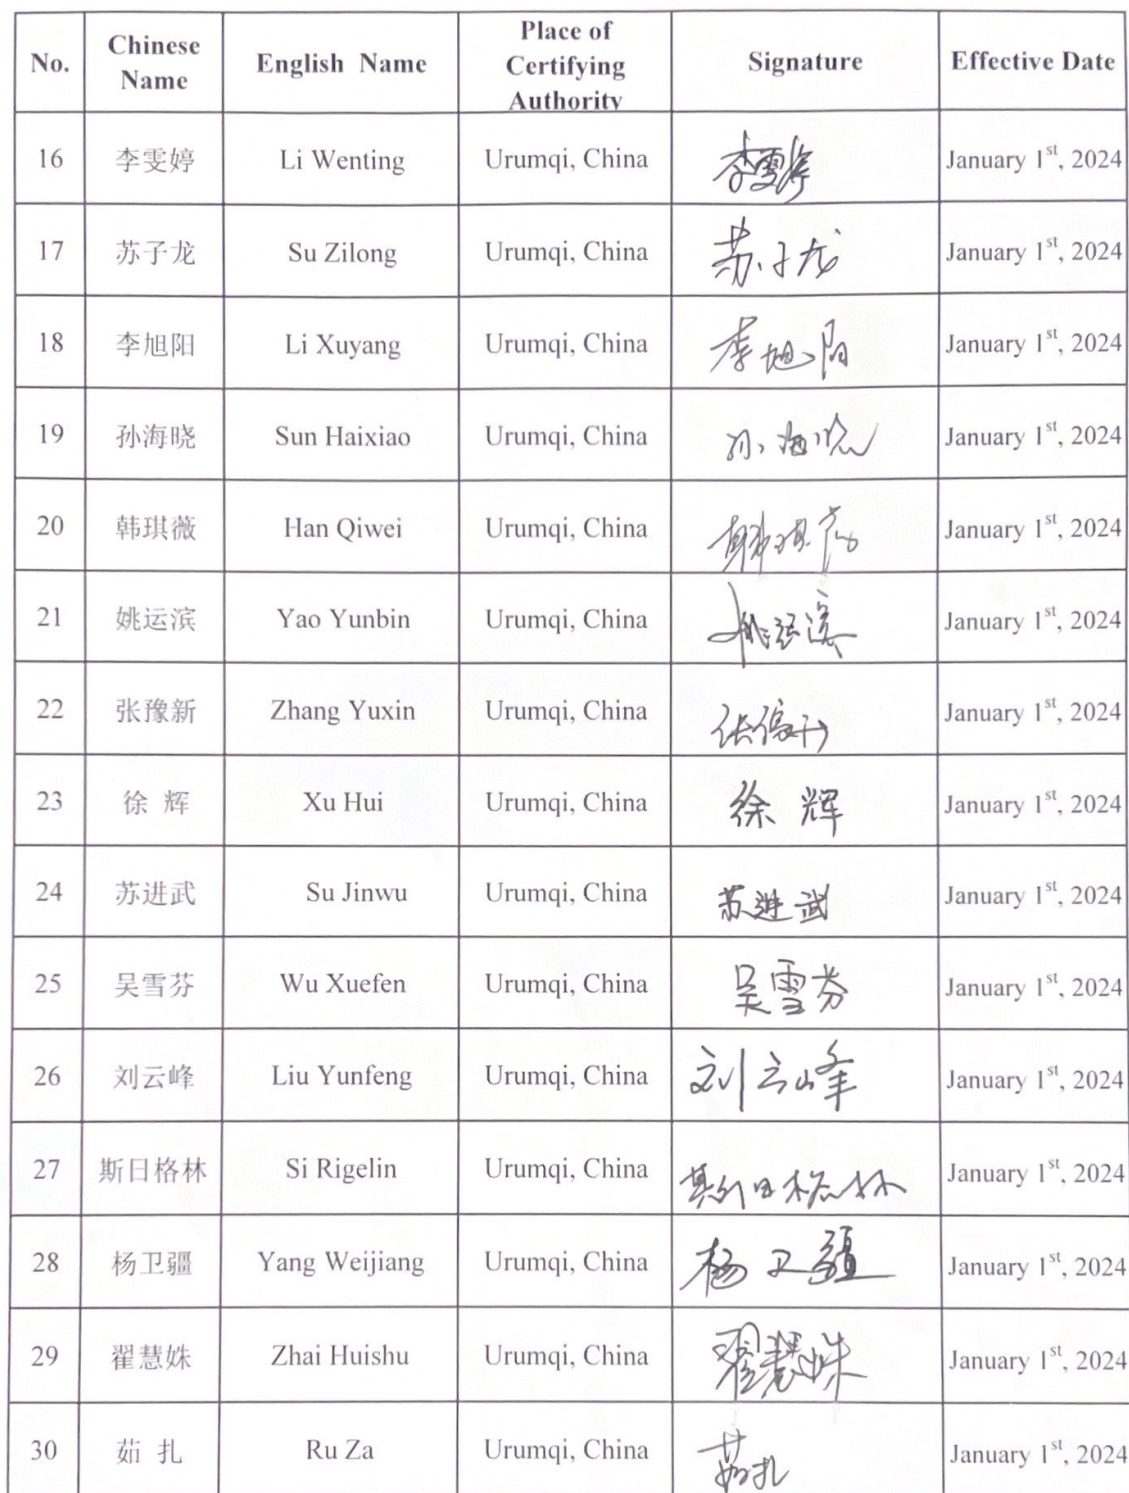 No. Chinese Name English Name Place of Certifying Authority Signature Effective Date
16 李雯婷 Li Wenting Urumqi, China 李雯婷 January 1st, 2024
17 苏子龙 Su Zilong Urumqi, China 苏子龙 January 1st, 2024
18 李旭阳 Li Xuyang Urumqi, China 李旭阳 January 1st, 2024
19 孙海晓 Sun Haixiao Urumqi, China 孙海晓 January 1st, 2024
20 韩琪薇 Han Qiwei Urumqi, China 韩琪薇 January 1st, 2024
21 姚运滨 Yao Yunbin Urumqi, China 姚运滨 January 1st, 2024
22 张豫新 Zhang Yuxin Urumqi, China January 1st, 2024
23 徐 辉 Xu Hui Urumqi, China 徐 辉 January 1st, 2024
24 苏进武 Su Jinwu Urumqi, China 苏进武 January 1st, 2024
25 吴雪芬 Wu Xuefen Urumqi, China 吴雪芬 January 1st, 2024
26 刘云峰 Liu Yunfeng Urumqi, China 刘云峰 January 1st, 2024
27 斯日格林 Si Rigelin Urumqi, China 斯日格林 January 1st, 2024
28 杨卫疆 Yang Weijiang Urumqi, China 杨卫疆 January 1st, 2024
29 翟慧姝 Zhai Huishu Urumqi, China 翟慧姝 January 1st, 2024
30 茹 扎 Ru Za Urumqi, China 茹扎 January 1st, 2024